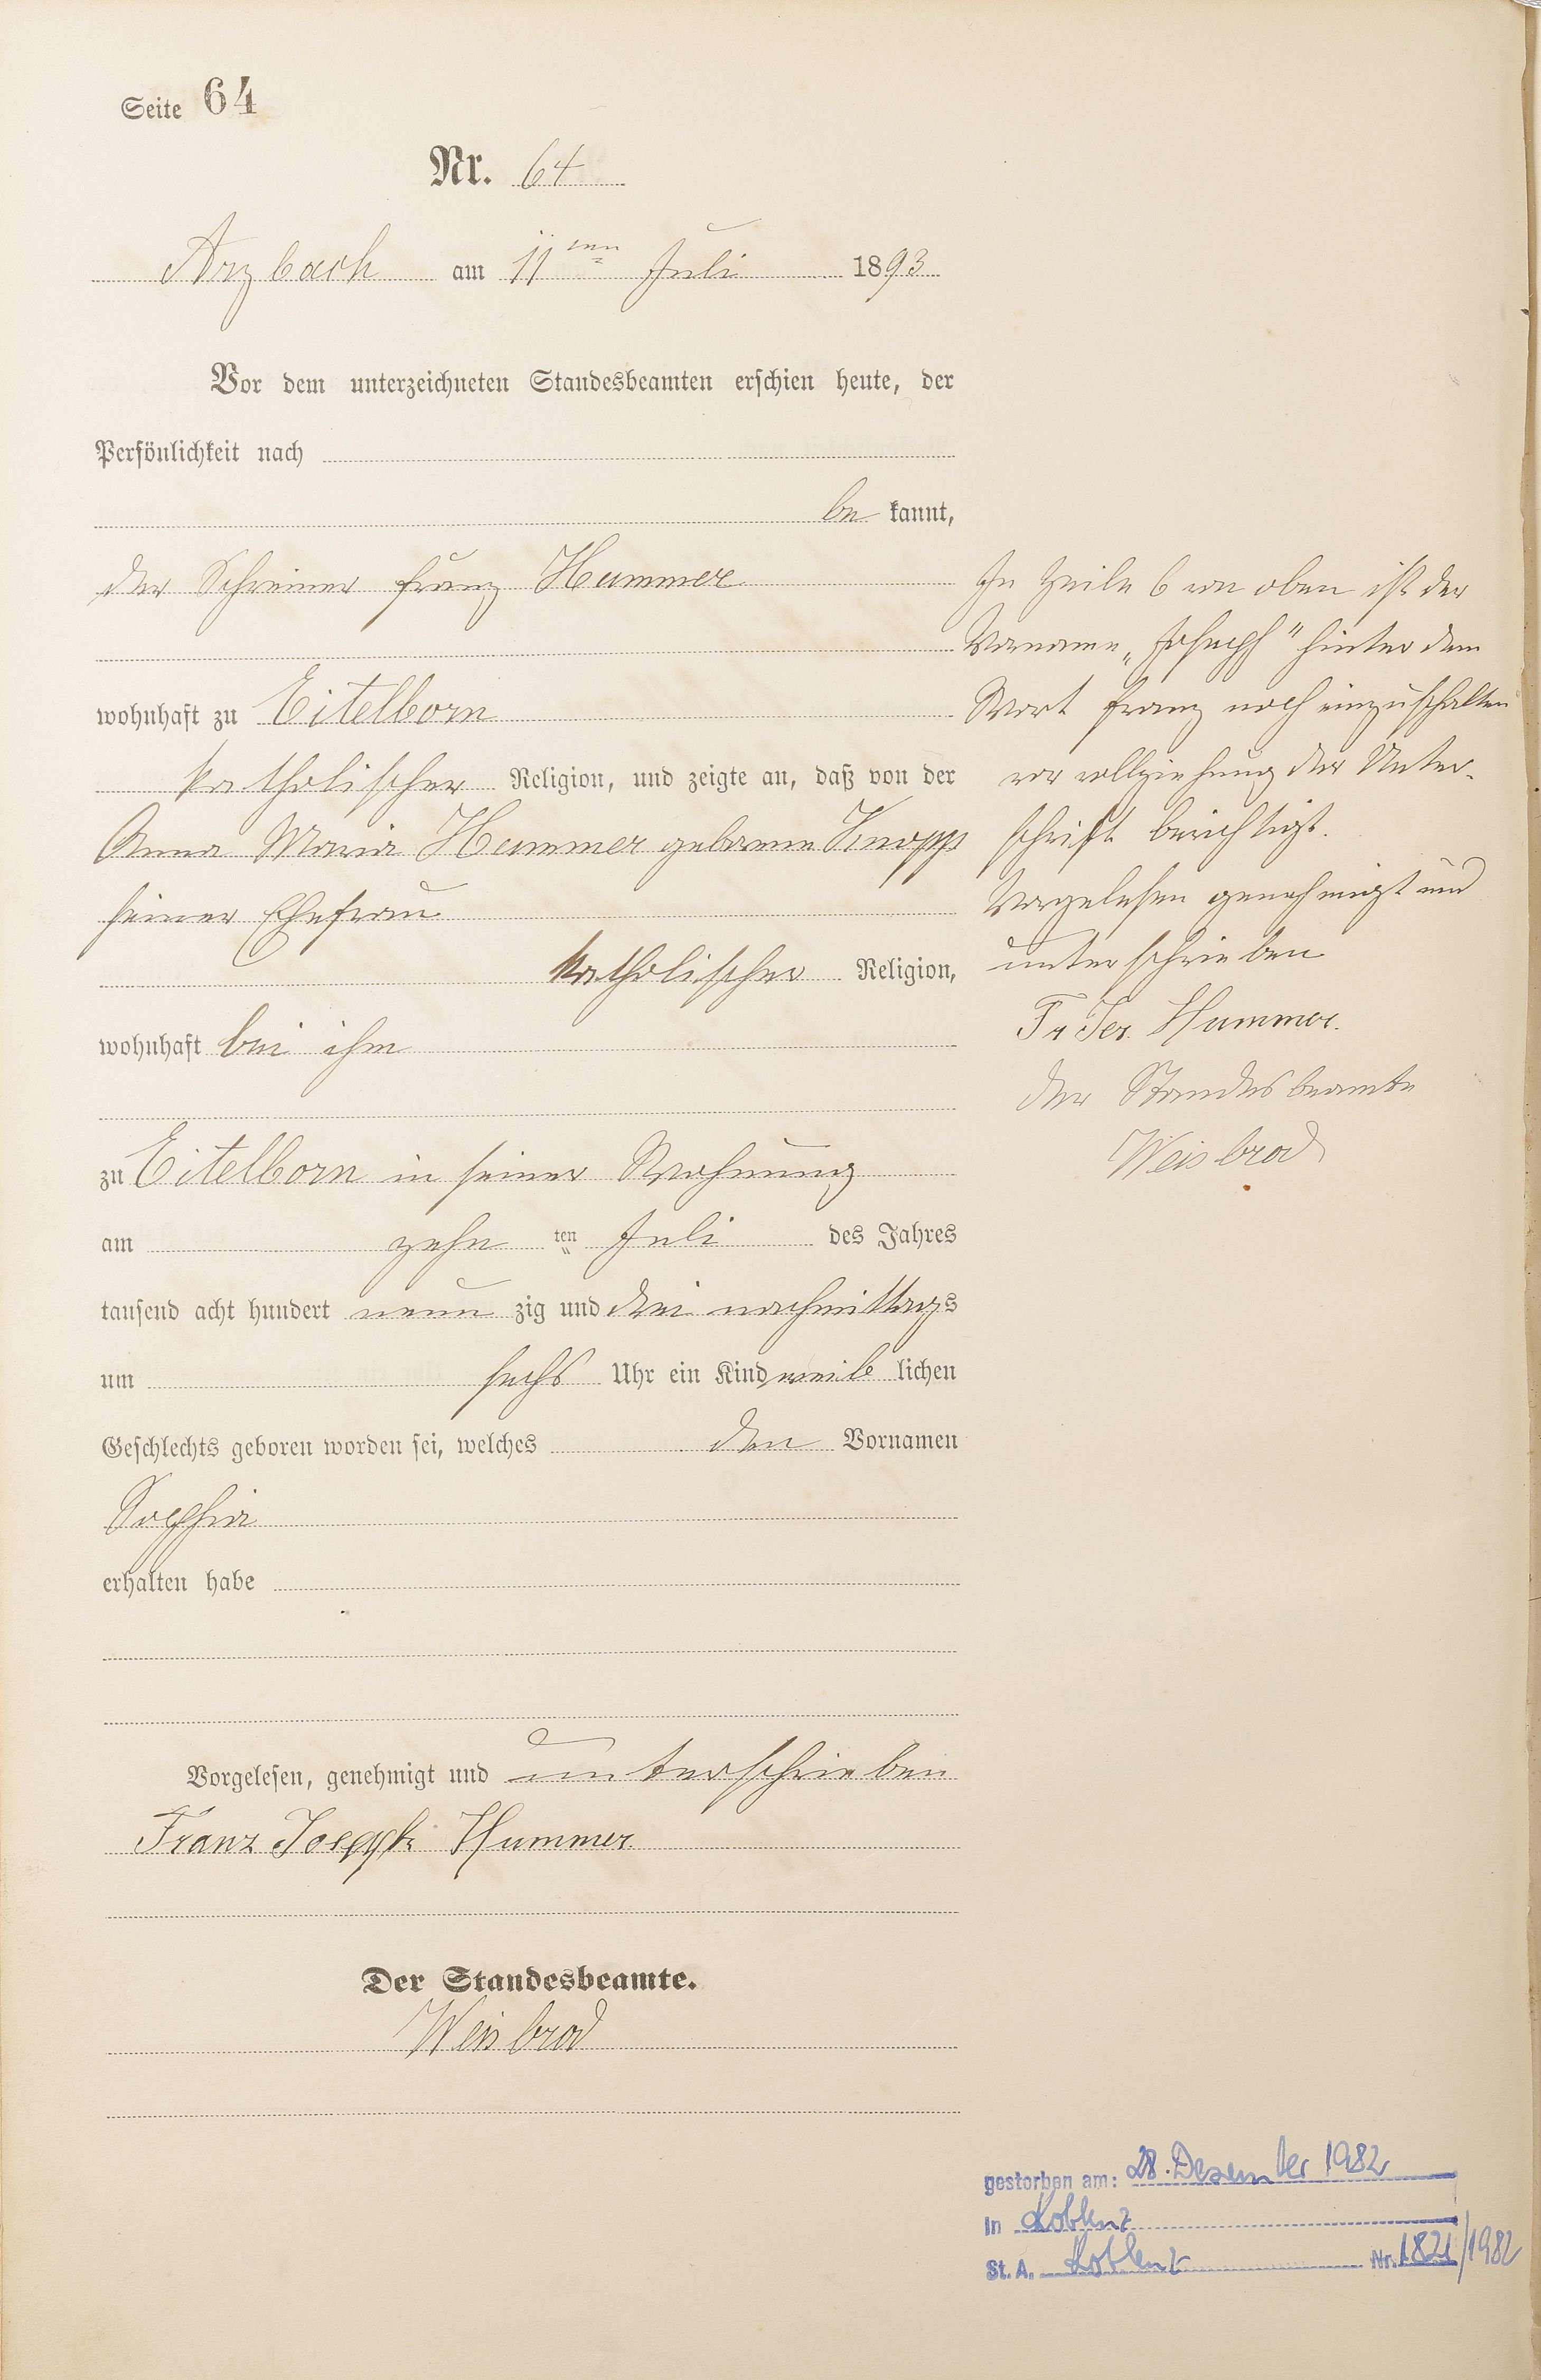 Seite 64
Nr. 64
Arzbach am 11ten Juli 1893
Vor dem unterzeichneten Standesbeamten erschien heute, der
Persönlichkeit nach
be kannt,
der Schreiner Franz Hummer
wohnhaft zu Eitelborn
katholischer Religion, und zeigte an, daß von der
Anna Maria Hummer geborene Knopp
seiner Ehefrau
katholischer Religion,
wohnhaft bei ihm
zu Eitelborn in seiner Wohnung
am zehn ten Juli des Jahres
tausend acht hundert neun zig und drei nachmittags
um sechs Uhr ein Kind weib lichen
Geschlechts geboren worden sei, welches den Vornamen
Sophia
erhalten habe
Vorgelesen, genehmigt und unterschrieben
Franz Joseph Hummer
Der Standesbeamte.
Weisbrod
In Zeile 6 von oben ist der
Vorname „Joseph" hinter dem
Wort Franz noch einzuschalten
vor vollziehung der Unter-
schrift berichtigt.
Vorgelesen genehmigt und
unterschrieben
Fr Hummer.
Der Standesbeamte
Weisbrod
gestorben am: 28. Dezember 1982
in Koblenz
St. A. Koblenz Nr. 1821/1982